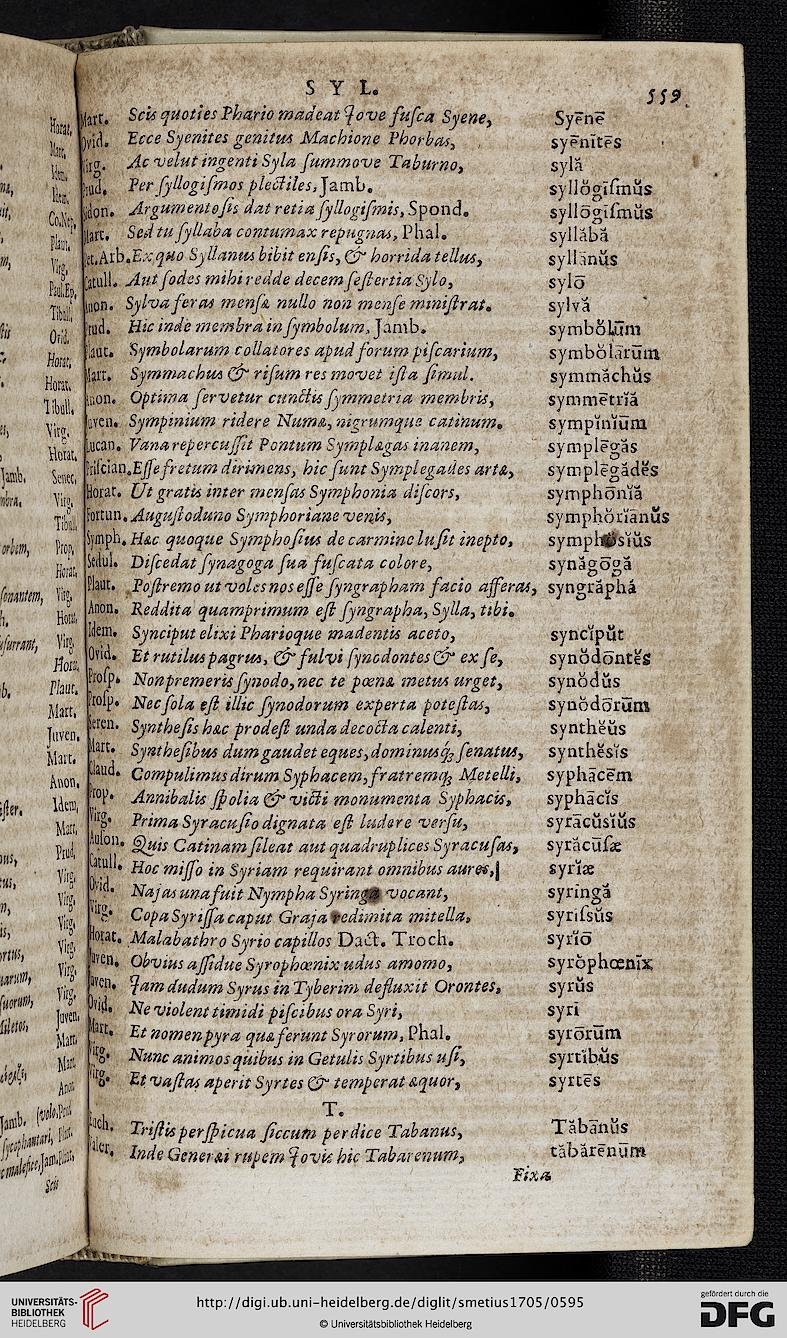 S Y L.
559.
Mart. Scis quoties Phario madeat Jove fuſca Syene, Syēnē
Ovid. Ecce Syenites genitus Machione Phorbas, syēnītēs
Virg. Ac velut ingenti Syla ſummove Taburno, sylă
Prud. Per ſyllogiſmos plectiles, Jamb. syllŏgiſmŭs
Sidon. Argumentoſis dat retia ſyllogiſmis, Spond. syllōgiſmŭs
Mart. Sed tu ſyllaba contumax repugnas, Phal. syllăbă
Pet. Arb. Ex quo Syllanus bibit enſis, & horrida tellus, syllānŭs
Catull. Aut ſodes mihi redde decem ſeſtertia Sylo, sylō
Anon. Sylva feras menſæ nullo non menſe miniſtrat. sylvă
Prud. Hic inde membra in ſymbolum, Jamb. symbŏlūm
Plaut. Symbolarum collatores apud forum piſcarium, symbŏlārūm
Mart. Symmachus & riſum res movet iſta ſimul. symmăchŭs
Anon. Optima ſervetur cunctis ſymmetria membris, symmĕtrĭă
Juven. Sympinium ridere Numæ, nigrumque catinum. sympĭnĭūm
Lucan. Vana repercuſſit Pontum Symplægas inanem, symplēgăs
Priſcian. Eſſe fretum dirimens, hic ſunt Symplegades artæ, symplēgădĕs
Horat. Ut gratis inter menſas Symphonia diſcors, symphōnĭă
Fortun. Auguſtoduno Symphoriane venis, symphŏrĭānŭs
Symph. Hæc quoque Symphoſius de carmine luſit inepto, symphŏsĭŭs
Sedul. Diſcedat ſynagoga ſua fuſcata colore, synăgōgă
Plaut. Poſtremo ut voles nos eſſe ſyngrapham facio afferas, syngrăphă
Anon. Reddita quamprimum eſt ſyngrapha, Sylla, tibi.
Idem. Synciput elixi Pharioque madentis aceto, syncĭpŭt
Ovid. Et rutilus pagrus, & fulvi ſyncdontes & ex ſe, synŏdōntĕs
Proſp. Non premeris ſynodo, nec te pœnæ metus urget, synŏdŭs
Proſp. Nec ſola eſt illic ſynodorum experta poteſtas, synŏdōrūm
Seren. Syntheſis hæc prodeſt unda decocta calenti, synthĕŭs
Mart. Syntheſibus dum gaudet eques, dominusq; ſenatus, synthĕsĭs
Claud. Compulimus dirum Syphacem, fratremq; Metelli, syphācēm
Prop. Annibalis ſpolia & victi monumenta Syphacis, syphācĭs
Virg. Prima Syracuſio dignata eſt ludere verſu, syrācŭsĭŭs
Auſon. Quis Catinam ſileat aut quadruplices Syracuſas, syrăcūſæ
Catull. Hoc miſſo in Syriam requirant omnibus aures, syrĭæ
Ovid. Najas una fuit Nympha Syringa vocant, syringă
Virg. Copa Syriſſa caput Graja redimita mitella, syriſsŭs
Horat. Malabathro Syrio capillos Dact. Troch. syrĭō
Juven. Obvius aſſidue Syrophœnix udus amomo, syrŏphœnīx
Juven. Jam dudum Syrus in Tyberim defluxit Orontes, syrŭs
Ovid. Ne violent timidi piſcibus ora Syri, syrī
Mart. Et nomen pyra quæ ferunt Syrorum, Phal. syrōrūm
Virg. Nunc animos quibus in Getulis Syrtibus uſi, syrtĭbŭs
Virg. Et vaſtas aperit Syrtes & temperat æquor, syrtēs
T.
Triſtis perſpicua ſiccum perdice Tabanus, Tăbānŭs
Inde Generæi rupem Jovis hic Tabarenum, tăbărēnūm
Fixa
UNIVERSITÄTS-
BIBLIOTHEK
HEIDELBERG
http://digi.ub.uni-heidelberg.de/diglit/smetius1705/0595
© Universitätsbibliothek Heidelberg
gefördert durch die
DFG